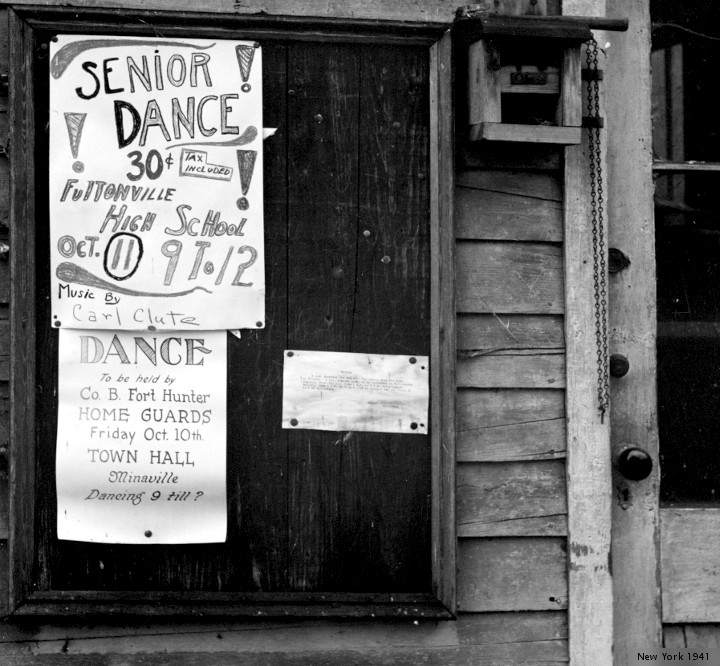 SENIOR
DANCE
30¢ TAX INCLUDED
FULTONVILLE
HIGH SCHOOL
OCT. 11 9 TO 12
MUSIC BY
Carl Clute
DANCE
To be held by
Co. B. Fort Hunter
HOME GUARDS
Friday Oct. 10th.
TOWN HALL
Minaville
Dancing 9 till ?
New York 1941